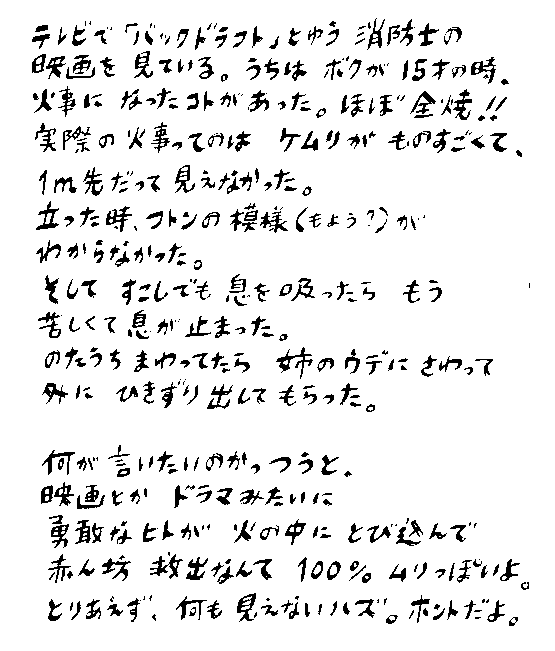 テレビで「バックドラフト」とゆう 消防士の
映画を見ている。うちは ボクが 15才の時、
火事に なったコトがあった。ほぼ 全焼!!
実際の火事ってのは ケムリが ものすごくて、
1m先だって見えなかった。
立った時、フトンの模様(もよう?)が
わからなかった。
そして すこしでも 息を吸ったら もう
苦しくて息が止まった。
のたうちまわってたら 姉のウデに さわって
外に ひきずり出して もらった。
何が言いたいのかっつうと、
映画とか ドラマみたいに
勇敢なヒトが 火の中に とび込んで
赤ん坊 救出なんて 100% ムリっぽいよ。
とりあえず、何も見えないハズ。ホントだよ。